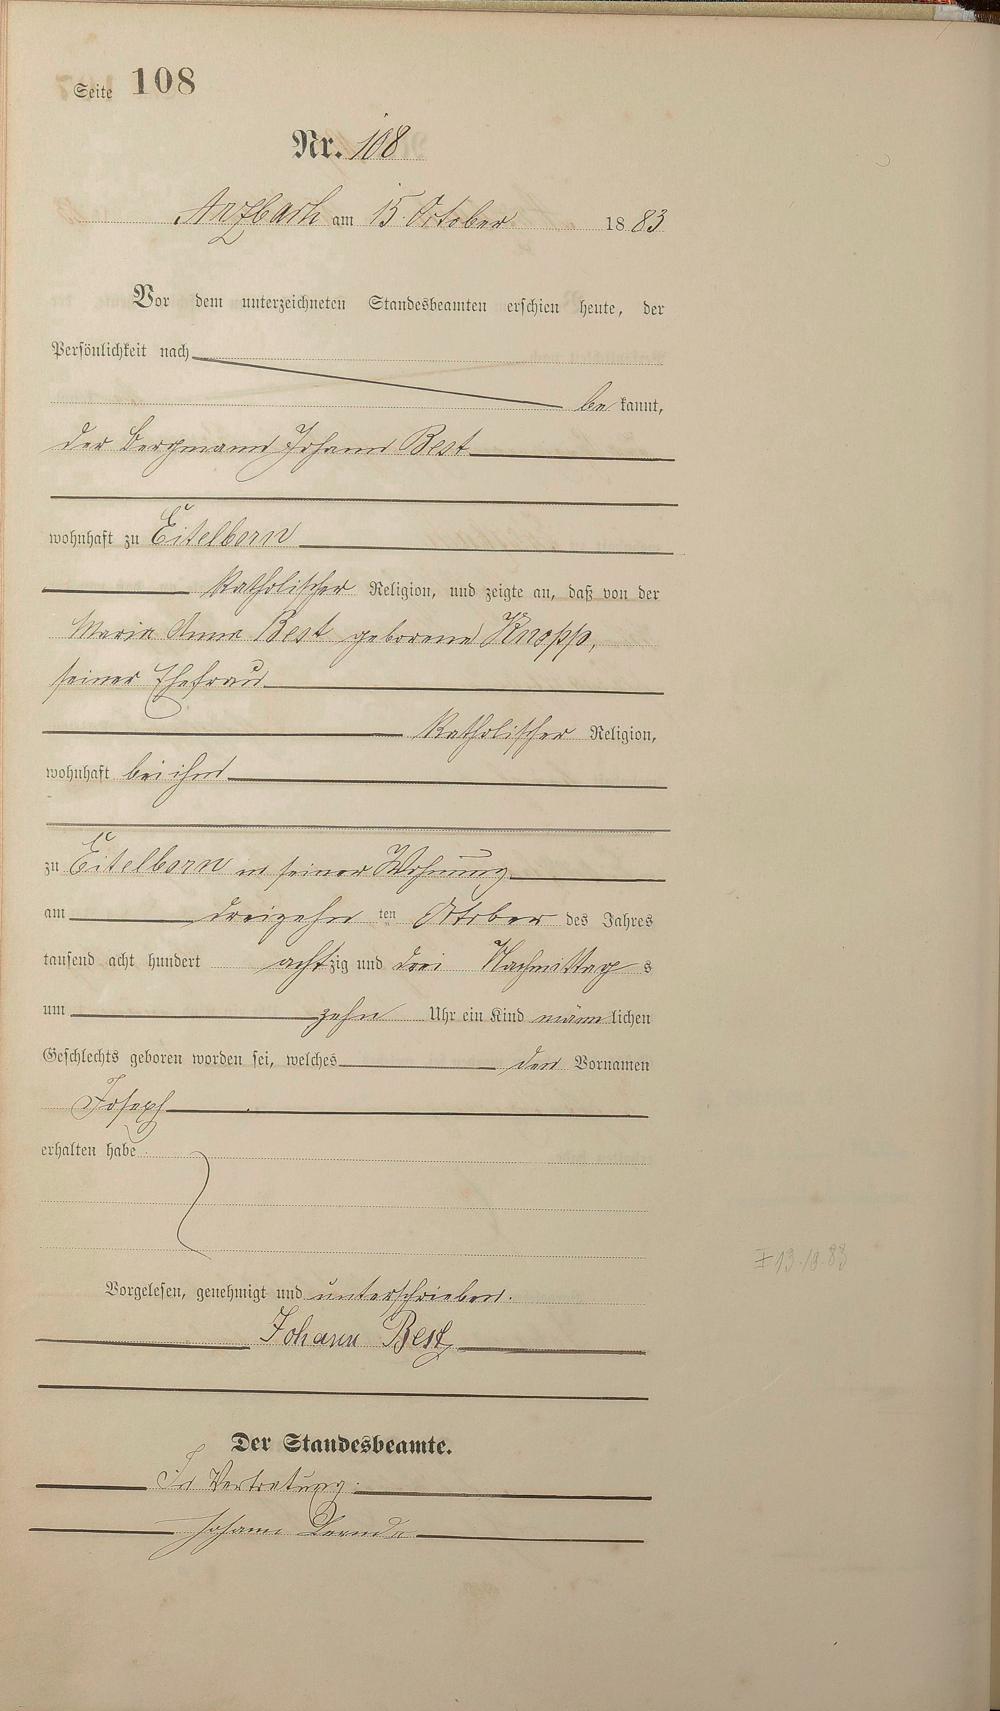 Seite 108
Nr. 108
Arzbach am 15. October 1883
Vor dem unterzeichneten Standesbeamten erschien heute, der
Persönlichkeit nach
be kannt,
der Bergmann Johann Best
wohnhaft zu Eitelborn
katholischer Religion, und zeigte an, daß von der
Maria Anna Best geborene Knopp,
seiner Ehefrau
katholischer Religion,
wohnhaft bei ihm
zu Eitelborn in seiner Wohnung
am dreizehn ten October des Jahres
tausend acht hundert achtzig und drei Nachmittag s
um zehn Uhr ein Kind männ lichen
Geschlechts geboren worden sei, welches den Vornamen
Joseph
erhalten habe
Vorgelesen, genehmigt und unterschrieben.
Johann Best
Der Standesbeamte.
In Vertretung:
Johann